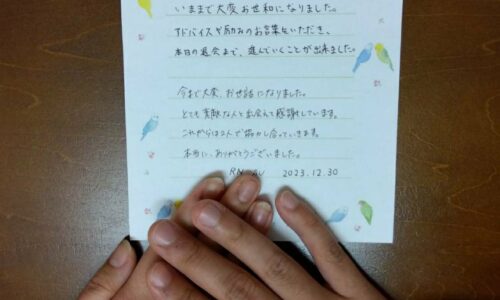 いままで大変お世和になりました。
アドバイスや励みのお言葉をいただき、
本日の退会まで、進んでいくことが出来ました。
今まで大変、お世話になりました。
とても素敵な人と出会えて感謝しています。
これからは2人で協力し合っていきます。
本当に、ありがとうございました。
2023.12.30